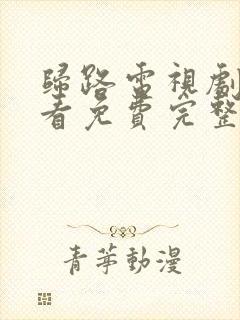 歸路電視劇
看免費完整
青苹動漫